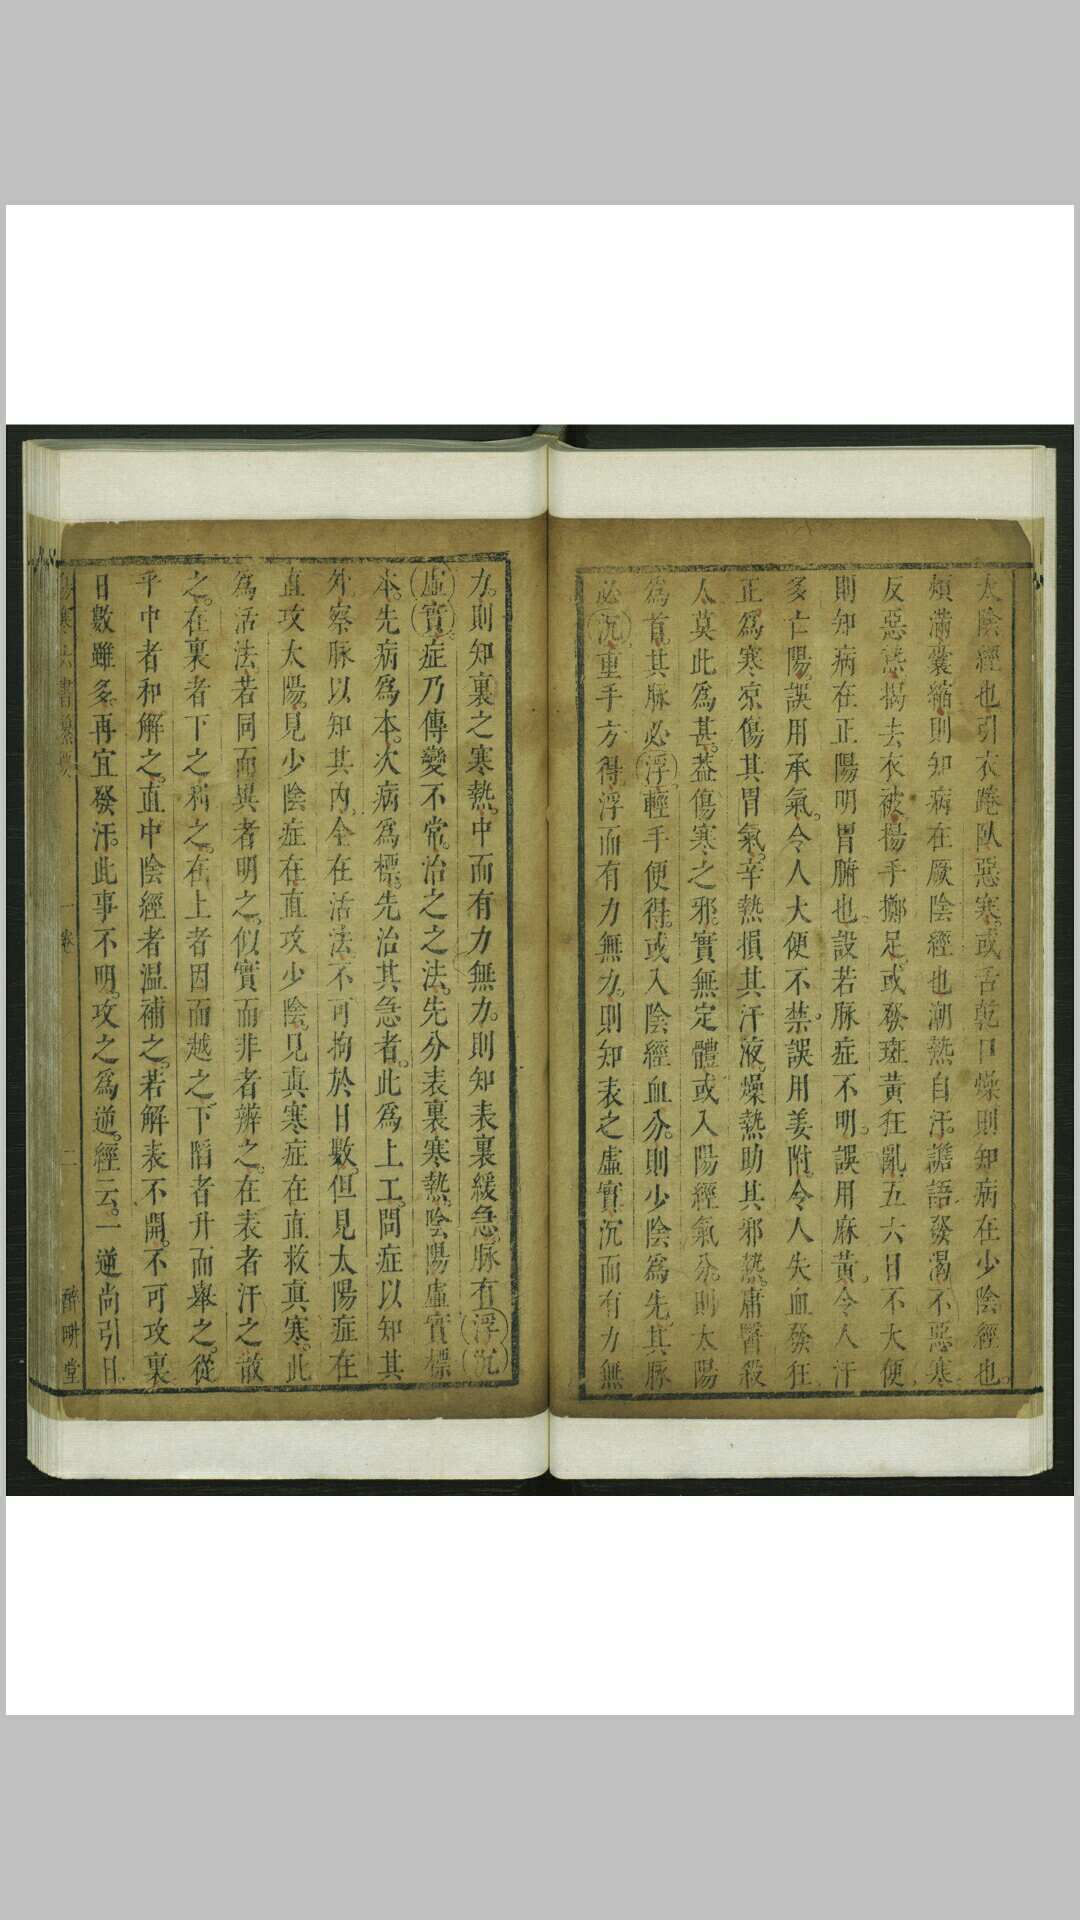 太陰經也引衣踡臥惡寒或舌乾口燥則知病在少陰經也
煩滿囊縮則知病在厥陰經也潮熱自汗譫語發渴不惡寒
反惡熱揭去衣被揚手擲足或發斑黃狂亂五六日不大便
則知病在正陽明胃腑也設若脉症不明誤用麻黃令人汗
多亡陽誤用承氣令人大便不禁誤用姜附令人失血發狂
正為寒凉傷其胃氣辛熱損其汗液燥熱助其邪熱庸醫殺
人莫此為甚蓋傷寒之邪實無定體或入陽經氣分則太陽
為首其脉必浮輕手便得或入陰經血分則少陰為先其脉
必沉重手方得浮而有力無力則知表之虛實沉而有力無
力則知裏之寒熱中而有力無力則知表裏緩急脉有浮沉
虛實症乃傳變不常治之之法先分表裏寒熱陰陽虛實標
本先病為本次病為標先治其急者此為上工問症以知其
外察脉以知其內全在活法不可拘於日數但見太陽症在
直攻太陽見少陰症在直攻少陰見真寒症在直救真寒此
為活法若同而異者明之似實而非者辨之在表者汗之散
之在裏者下之利之在上者因而越之下陷者升而舉之從
乎中者和解之直中陰經者温補之若解表不開不可攻裏
日數雖多再宜發汗此事不明攻之為逆經云一逆尚引日
傷寒六書纂要 一卷 二 醉畊堂